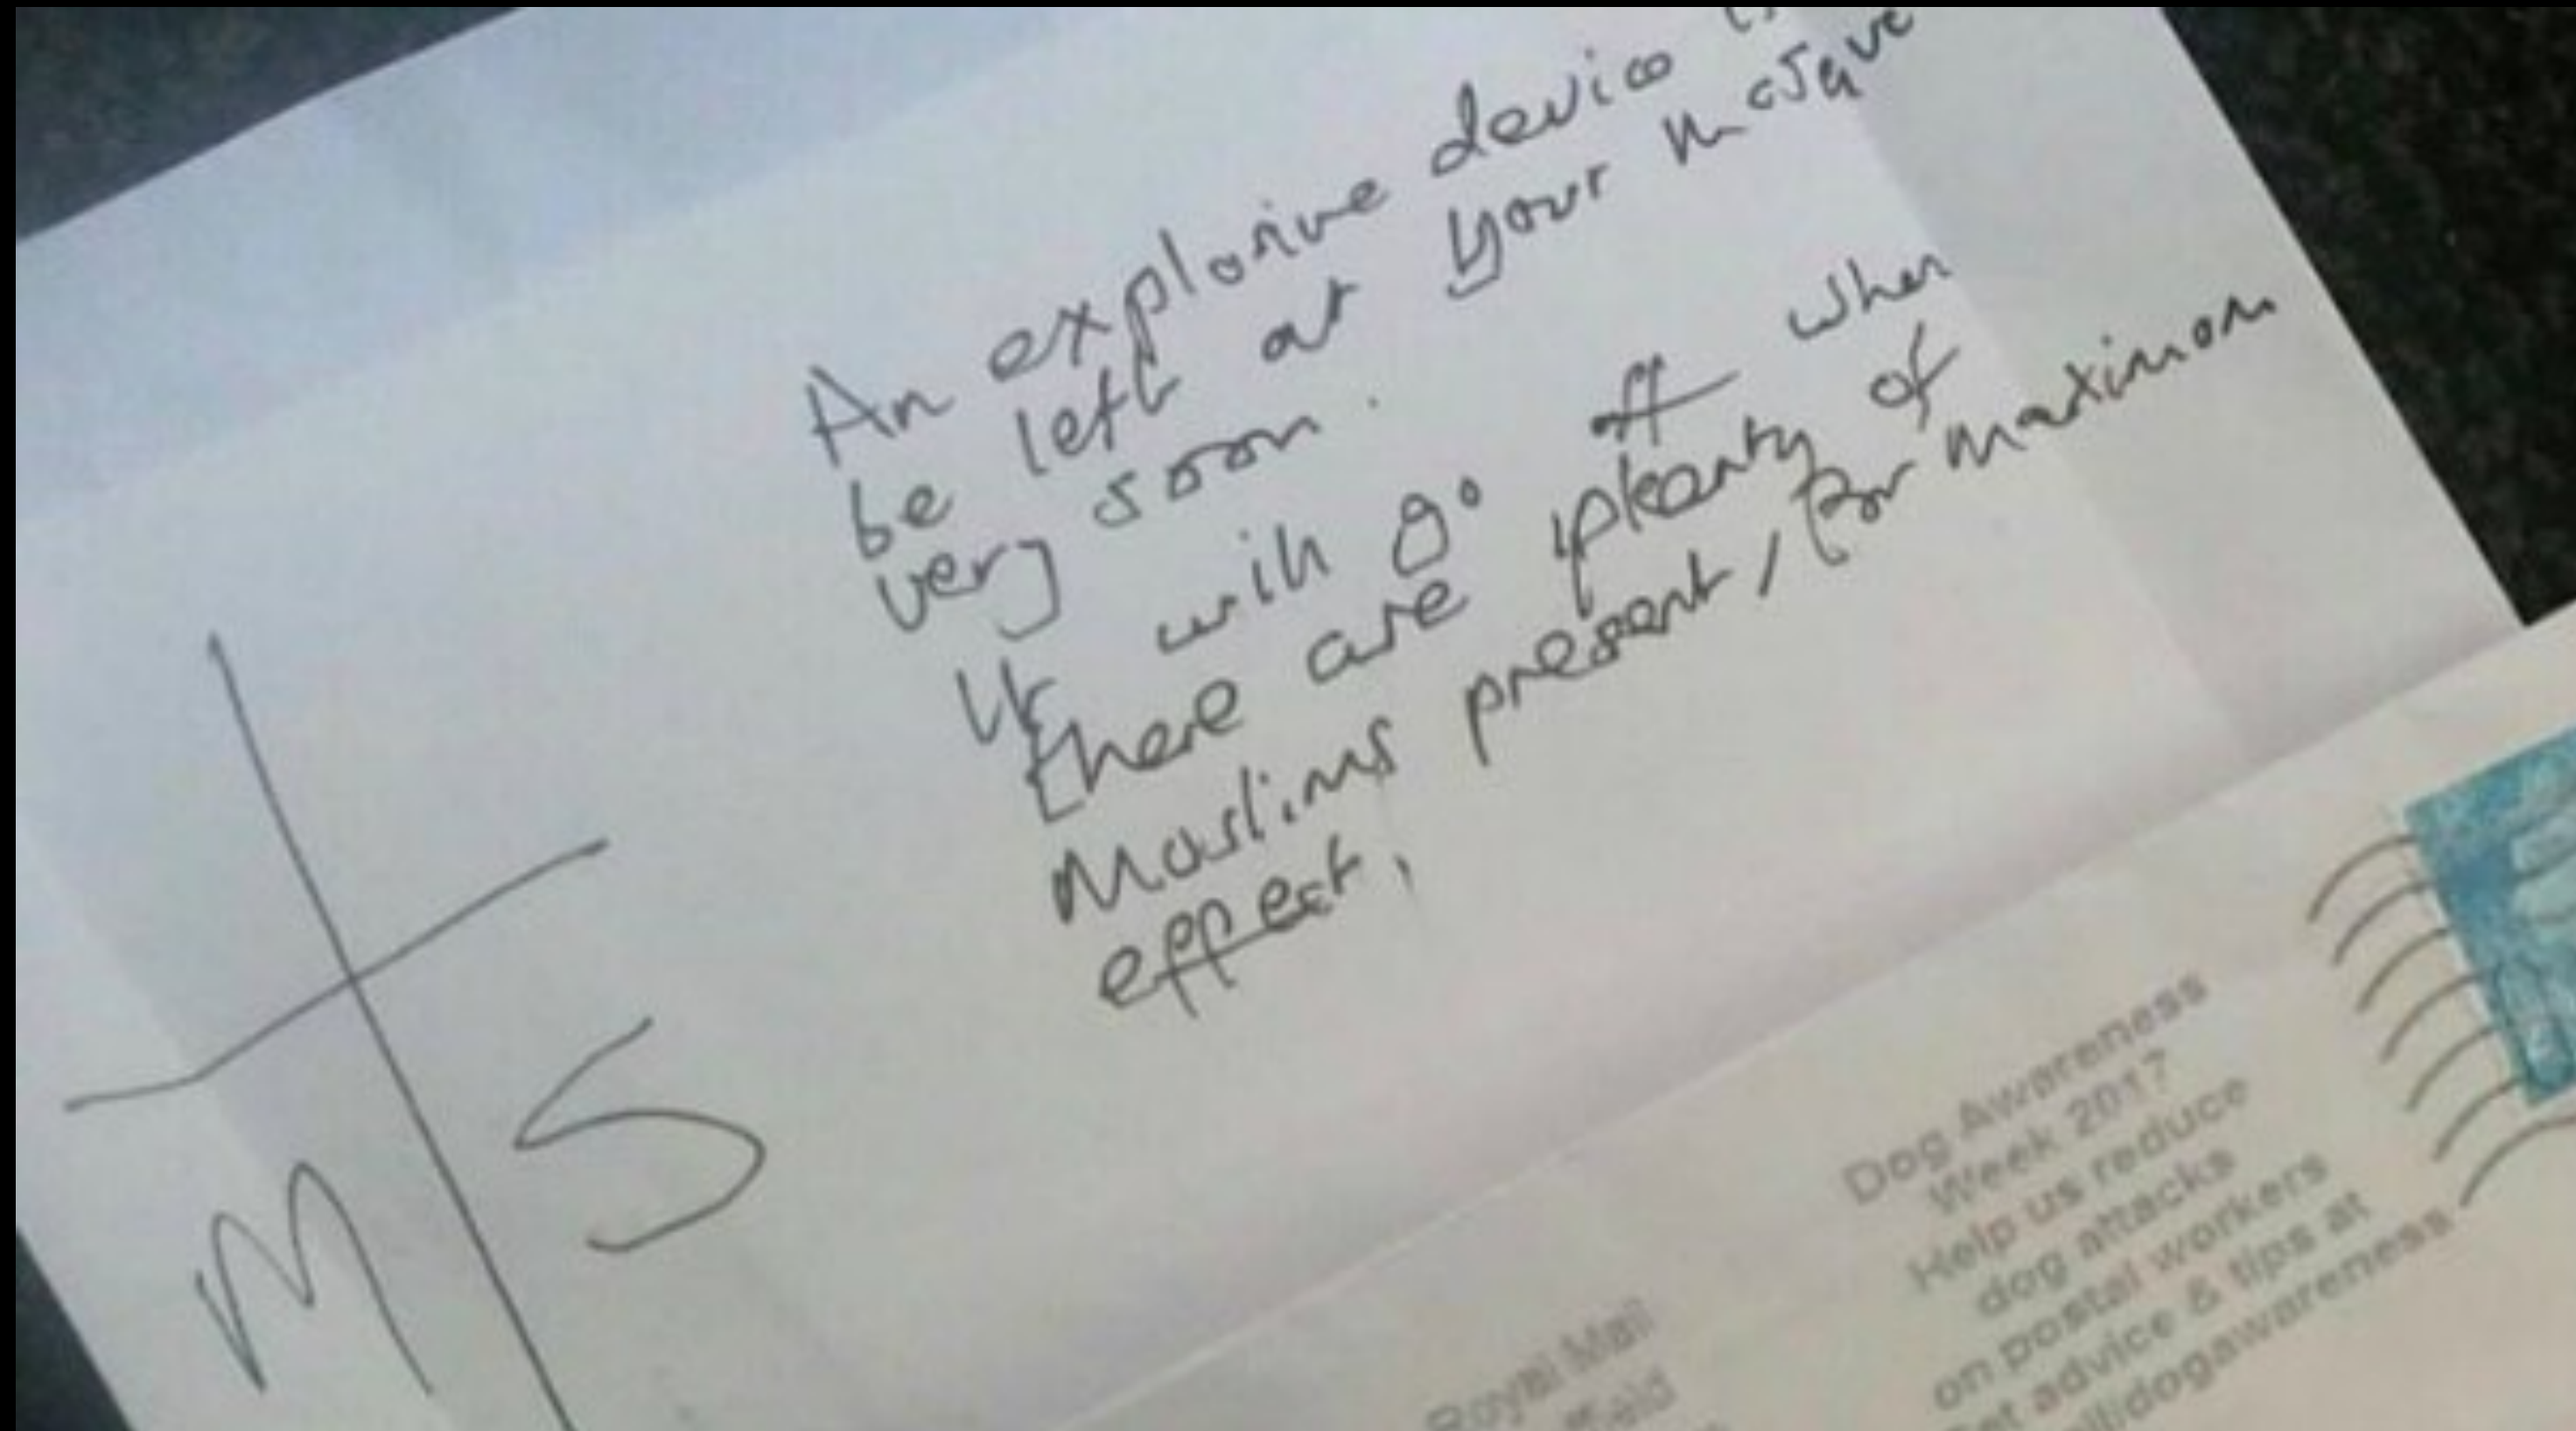 An explosive device is
be left at your mosque
very soon.
It will go off when
there are plenty of
Muslims present, for maximum
effect.
M S
Dog Awareness
Week 2017
Help us reduce
dog attacks
on postal workers
advice & tips at
dogawareness
Royal Mail